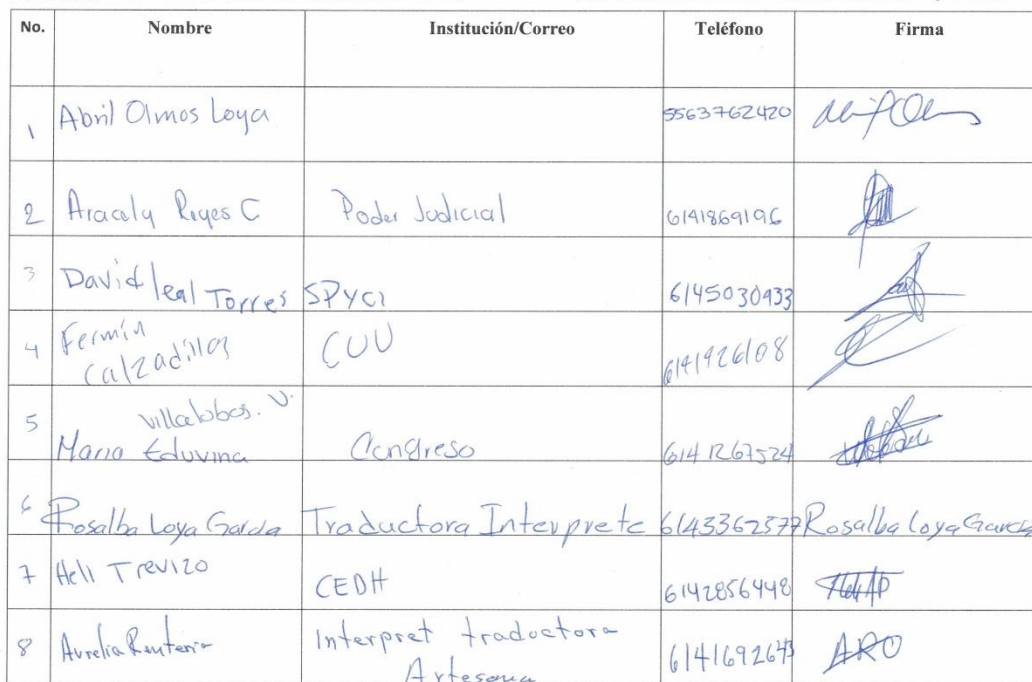 No. Nombre Institución/Correo Teléfono Firma
1 Abril Olmos Loya 5563762420
2 Aracely Reyes C Poder Judicial 6141869196
3 David leal Torres SPyCI 6145030933
4 Fermín
Calzadillas CUU 6141926108
5 Villalobos. V.
Maria Eduvina Congreso 6141267524
6 Rosalba Loya Garcia Traductora Interprete 6143362577 Rosalba Loya Garcia
7 Heli Trevizo CEDH 6142856448
8 Aurelia Renteria Interpret traductora 6141692643 ARO
Artesana